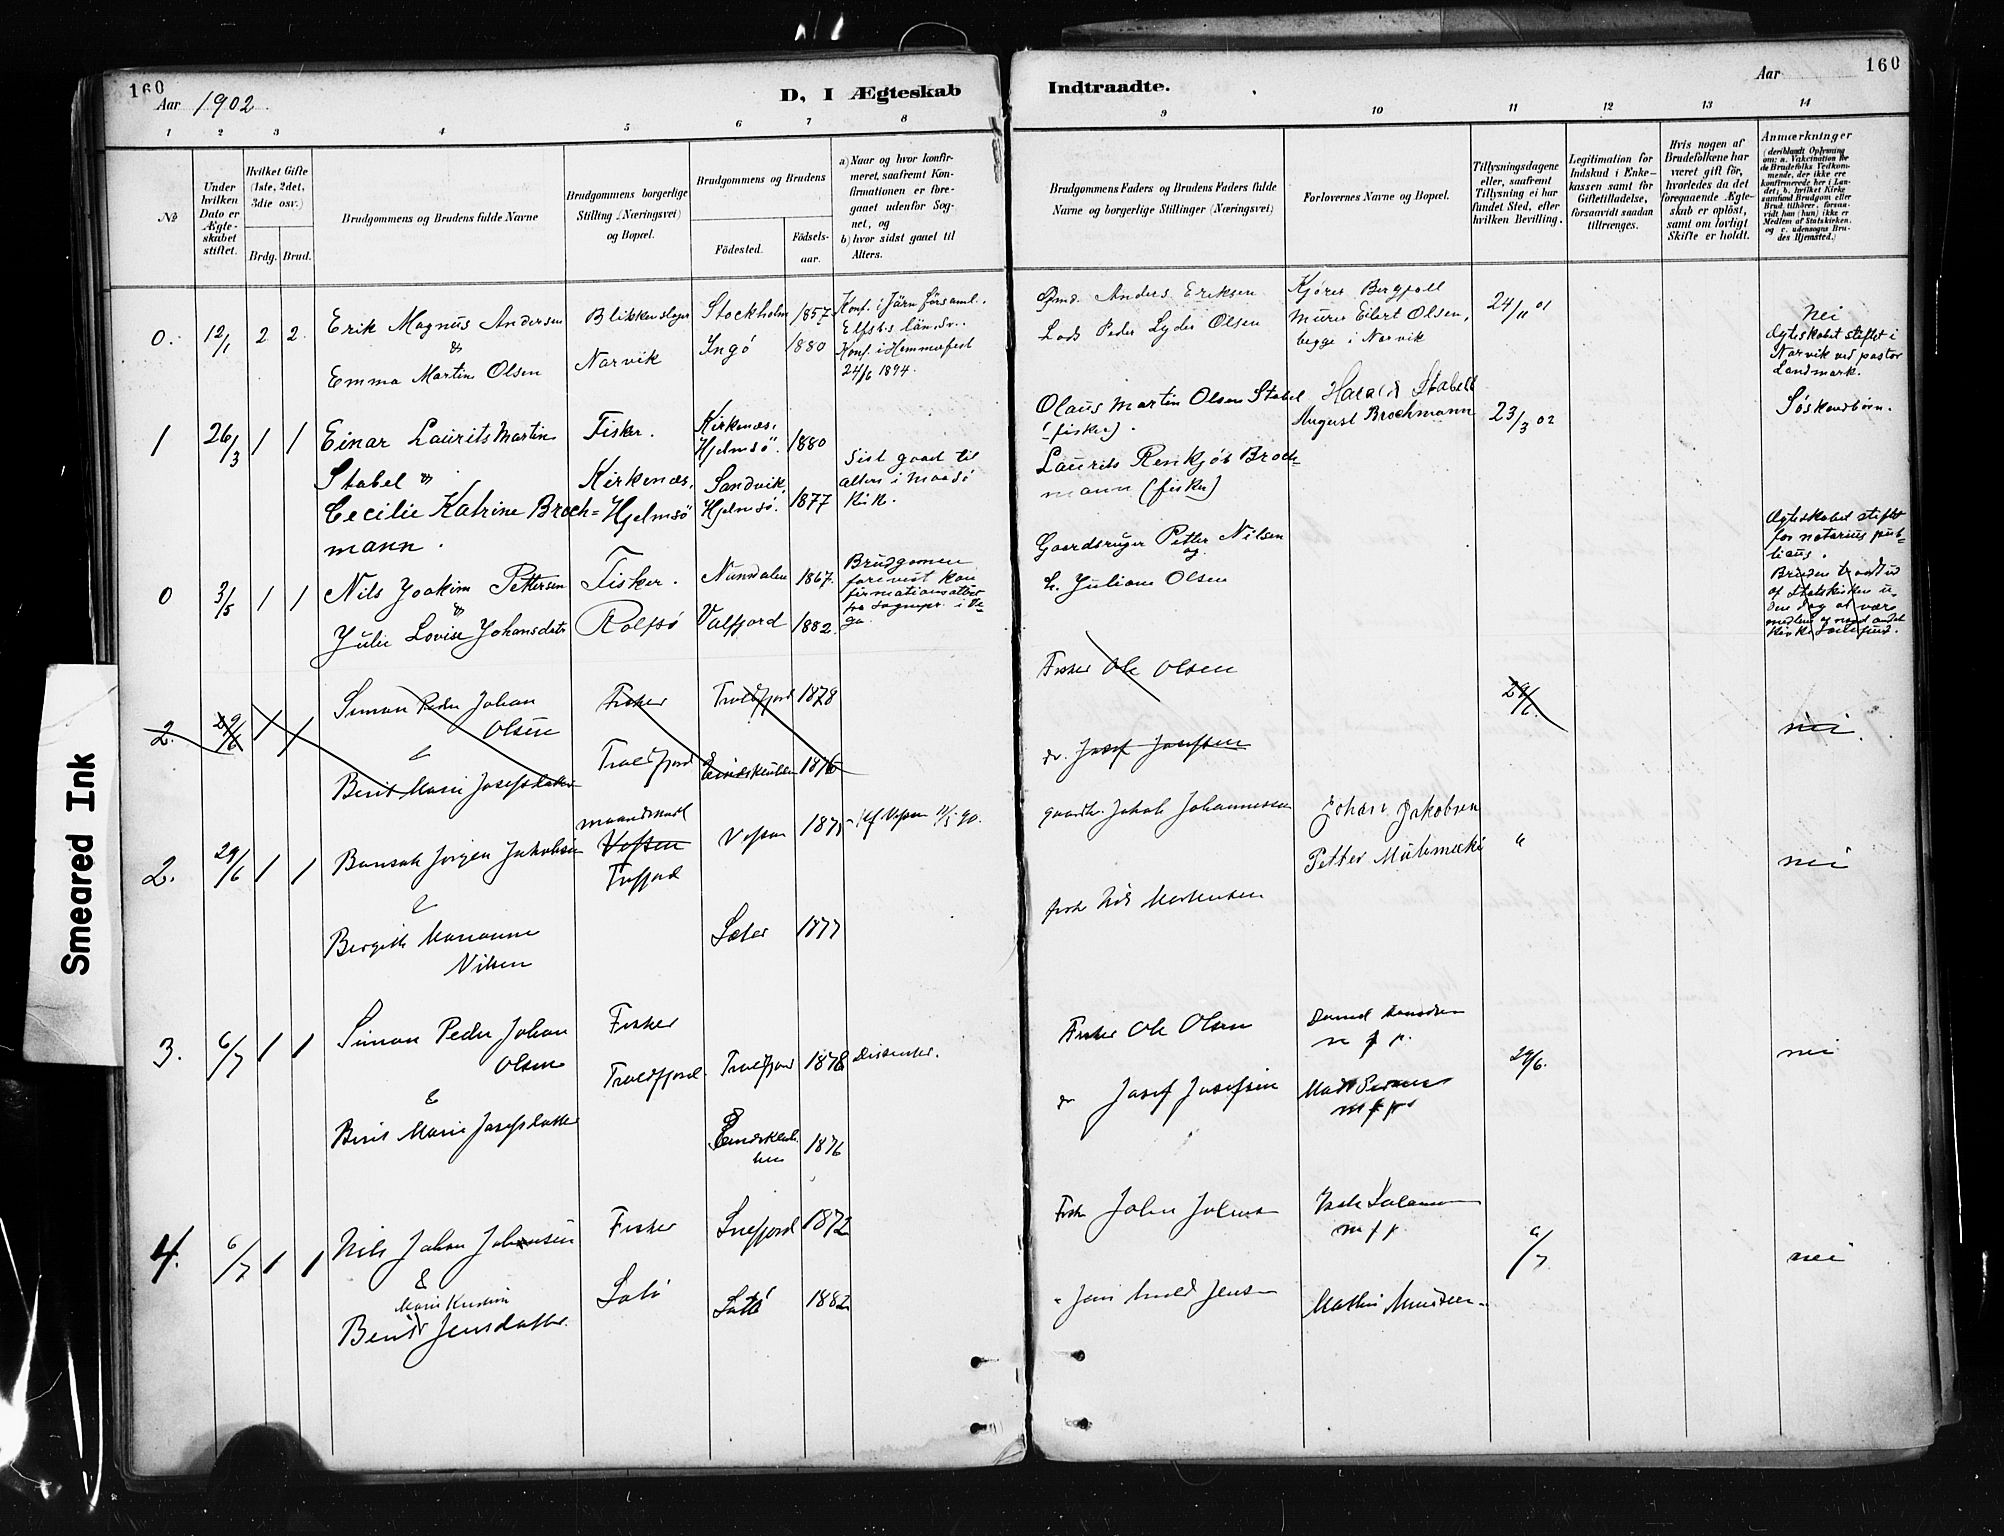 160
Aar 1902.
D, I Ægteskab
Indtraadte.
Aar
160
1 2 3 4 5 6 7 8 9 10 11 12 13 14
No
Under hvilken Dato er Ægteskabet stiftet.
Hvilket Gifte (1ste, 2det, 3die osv.)
Brdg. Brud.
Brudgommens og Brudens fulde Navne
Brudgommens borgerlige Stilling (Næringsvei) og Bopæl.
Brudgommens og Brudens
Fødested.
Fødselsaar.
a) Naar og hvor konfirmeret, saafremt Konfirmationen er foregaaet udenfor Sognet, og
b) hvor sidst gaaet til Alters.
Brudgommens Faders og Brudens Faders fulde Navne og borgerlige Stillinger (Næringsvei)
Forlovernes Navne og Bopæl.
Tillysningsdagene eller, saafremt Tillysning ei har fundet Sted, efter hvilken Bevilling.
Legitimation for Indskud i Enkekassen samt for Giftetilladelse, forsaavidt saadan tiltrænges.
Hvis nogen af Brudefolkene har været gift før, hvorledes da det foregaaende Ægteskab er opløst, samt om lovligt Skifte er holdt.
Anmærkninger
(deriblandt Oplysning om: a. Vakcination for de Brudefolks Vedkommende, der ikke ere konfirmerede her i Landet; b. hvilket Kirkesamfund Brudgom eller Brud tilhører, forsaavidt han (hun) ikke er Medlem af Statskirken, og c. udensogns Brudes Hjemsted.)
0. 12/1 2 2. Erik Magnus Andersen
&
Emma Martine Olsen
Blikkenslager
Narvik
Stockholm 1857
Ingø 1880
Konf. i Järn Församl.
Konf. i Hammerfest
24/6 1894.
Anders Eriksen
Lods Peder Lyder Olsen
Murer Eilert Olsen,
begge i Narvik
24/11 01
Nei
Ægteskabet stiftet i
Narvik ved pastor
Landmark.
1 26/3 1 1 Einar Laurits Martin
Stabel &
Cecilie Katrine Broch=
mann.
Fisker.
Kirkenæs,
Hjelmsø
Kirkenæs,
Hjelmsø. 1880
Sandvik
Hjelmsø. 1877
Sist gaaet til
alters i Maasø
Kik.
Olaus Martin Olsen Stabel
(fisker).
Laurits Renkjøb Broch=
mann (fisker)
Harald Stabell
August Brochmann
23/3 02
Søskendbørn.
0 3/5 1 1 Nils Joakim Pettersen
&
Julie Lovise Johansdatr
Fisker.
Rolfsø
Namdalen 1867.
Valfjord 1882.
Brudgommen
forevist kon
firmationsattest
fra sognepr. i Ve=
ga.
Gaardbruger Petter Nilsen
og
Juliane Olsen
Ægteskabet stiftet
for notarius pub=
licus.
Bruden traadt ud
af Statskirken u=
den dog at være
medlem af noget andet
kirkesamfund.
2. 29/6 1 1 Simon Peder Johan
Olsen
&
Berit Marie Josefsdatter
Fisker
Troldfjord
Troldfjord 1878
1876
Fisker Ole Olsen
do. Josef Josefsen
29/6.
nei.
2. 29/6 1 1 Jørgen Jakobsen
&
Bergitte Marianne
Nilsen
Vefsen
Vefsen 1875
1877
Kf. Vefsen 90.
gaardbr. Jakob Johannessen
Nils Mortensen
Johan Jakobsen
Petter
"
nei
3. 6/7 1 1 Simon Peder Johan
Olsen
&
Berit Marie Josefsdatter
Fisker
Troldfjord
Troldfjord 1878
1876
Dissenter.
Fisker Ole Olsen
do Josef Josefsen
m f p.
m f p.
29/6.
nei
4. 6/7 1 1 Nils Johan Johnsen
&
Marie Kristine
Berit Jensdatter.
Fisker
Snefjord 1872
1882
John Johnsen
Jens Jensen
m f p.
6/7
nei
Smeared Ink